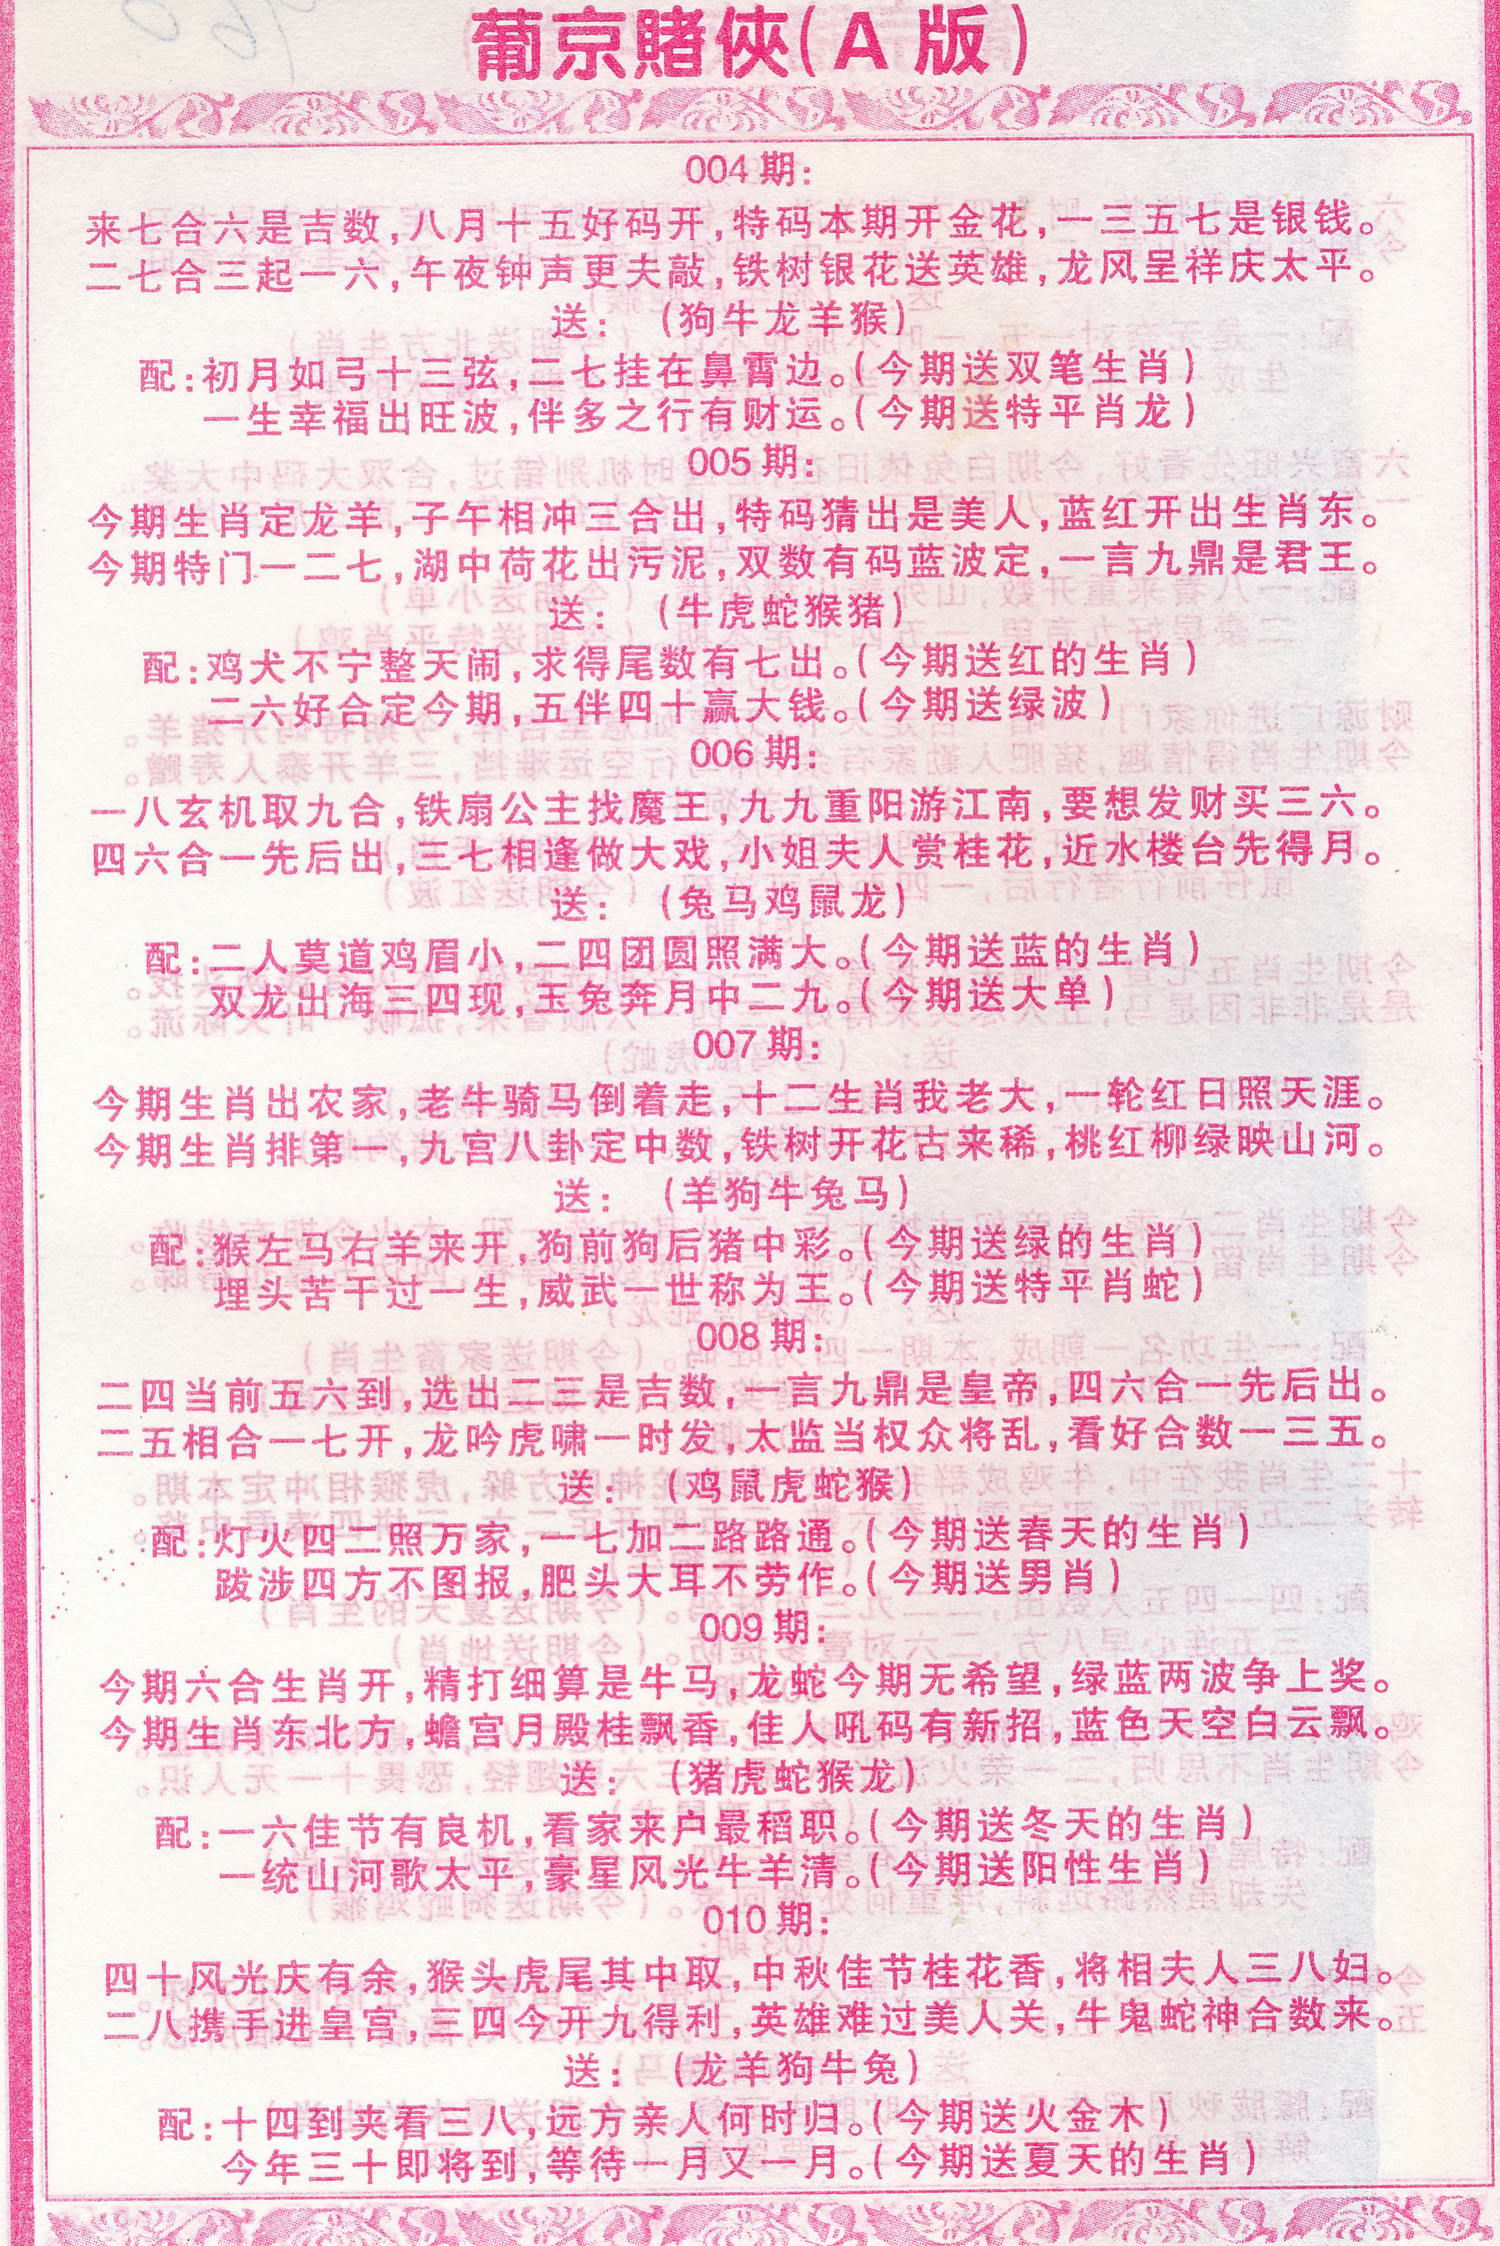 葡京賭俠(A版)
004期:
来七合六是吉数,八月十五好码开,特码本期开金花,一三五七是银钱。
二七合三起一六,午夜钟声更夫敲,铁树银花送英雄,龙风呈祥庆太平。
送: (狗牛龙羊猴)
配:初月如弓十三弦,二七挂在鼻霄边。(今期送双笔生肖)
一生幸福出旺波,伴多之行有财运。(今期送特平肖龙)
005期:
今期生肖定龙羊,子午相冲三合出,特码猜出是美人,蓝红开出生肖东。
今期特门一二七,湖中荷花出污泥,双数有码蓝波定,一言九鼎是君王。
送: (牛虎蛇猴猪)
配:鸡犬不宁整天闹,求得尾数有七出。(今期送红的生肖)
二六好合定今期,五伴四十赢大钱。(今期送绿波)
006期:
一八玄机取九合,铁扇公主找魔王,九九重阳游江南,要想发财买三六。
四六合一先后出,三七相逢做大戏,小姐夫人赏桂花,近水楼台先得月。
送: (兔马鸡鼠龙)
配:二人莫道鸡眉小,二四团圆照满大。(今期送蓝的生肖)
双龙出海三四现,玉兔奔月中二九。(今期送大单)
007期:
今期生肖出农家,老牛骑马倒着走,十二生肖我老大,一轮红日照天涯。
今期生肖排第一,九宫八卦定中数,铁树开花古来稀,桃红柳绿映山河。
送: (羊狗牛兔马)
配:猴左马右羊来开,狗前狗后猪中彩。(今期送绿的生肖)
埋头苦干过一生,威武一世称为王。(今期送特平肖蛇)
008期:
二四当前五六到,选出二三是吉数,一言九鼎是皇帝,四六合一先后出。
二五相合一七开,龙吟虎啸一时发,太监当权众将乱,看好合数一三五。
送: (鸡鼠虎蛇猴)
配:灯火四二照万家,一七加二路路通。(今期送春天的生肖)
跋涉四方不图报,肥头大耳不劳作。(今期送男肖)
009期:
今期六合生肖开,精打细算是牛马,龙蛇今期无希望,绿蓝两波争上奖。
今期生肖东北方,蟾宫月殿桂飘香,佳人吼码有新招,蓝色天空白云飘。
送: (猪虎蛇猴龙)
配:一六佳节有良机,看家来户最稻职。(今期送冬天的生肖)
一统山河歌太平,豪星风光牛羊清。(今期送阳性生肖)
010期:
四十风光庆有余,猴头虎尾其中取,中秋佳节桂花香,将相夫人三八妇。
二八携手进皇宫,三四今开九得利,英雄难过美人关,牛鬼蛇神合数来。
送: (龙羊狗牛兔)
配:十四到夹看三八,远方亲人何时归。(今期送火金木)
今年三十即将到,等待一月又一月。(今期送夏天的生肖)